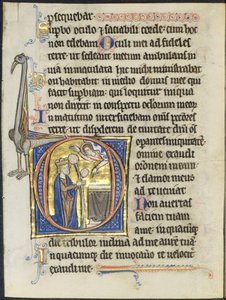 sequebar
Supbo oculo ⁊ insaciabili corde: cum hoc
non edebam Oculi mei ad fideles
terre ut sedeant mecum: ambulans in
uia inmaculata hic michi ministrabat
Non habitabit in medio domus mee qui
facit supbiam: qui loquitur iniqua
non direxit in conspectu oculorum meorum
In matutino interficiebam omnes peccatores
terre: ut disperderem de ciuitate domini omnes
operantes iniquitatem
omine exaudi
orationem meam:
et clamor meus
ad te ueniat
Non auertas
faciem tuam
a me: in quacumque
die tribulor inclina ad me aurem tuam
In quacumque die inuocauero te: uelociter
exaudi me